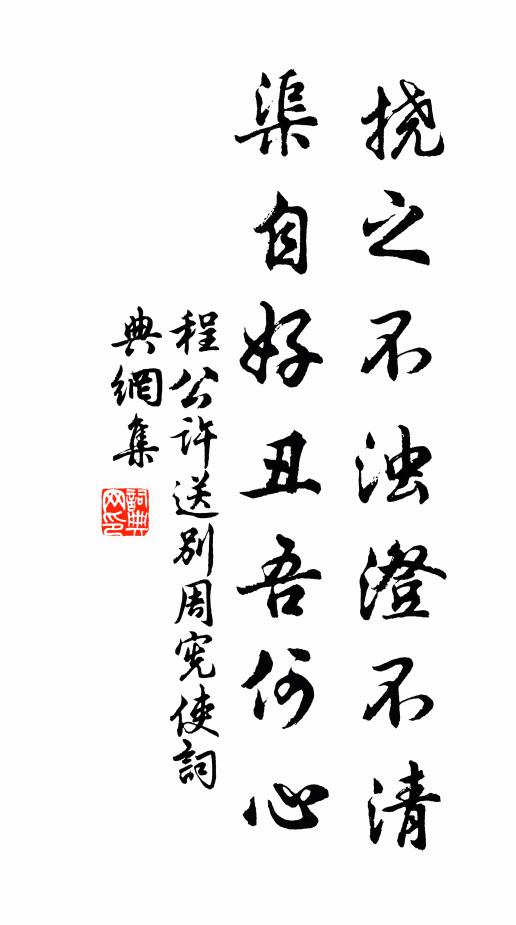 挠之不浊澄不清
渠自好丑吾何心
程公许送别周宪使詞
典網集
詞典
网印